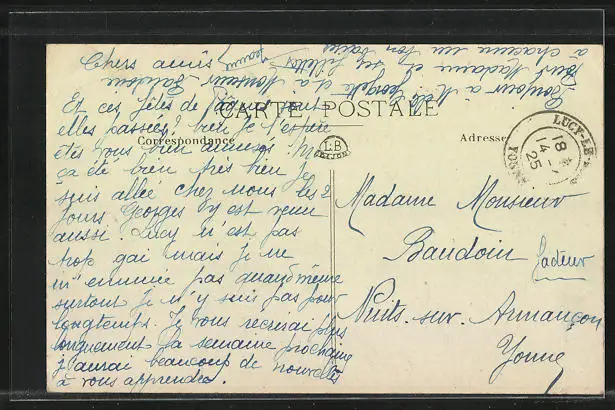 Chers amis
Et ces fêtes de Pâques sont
elles passées? bien je l'espère
êtes vous bien amusés Moi
ça été bien très bien je
suis allée chez nous les 2
jours. Georges y est venu
aussi. Lucy n'est pas
trop gai mais je ne
m'ennuie pas quand même
surtout je n'y suis pas pour
longtemps. Je vous récrirai plus
longuement la semaine prochaine
j'aurai beaucoup de nouvelles
à vous apprendre.
Bonjour à
Georgette et à Monsieur Baudoin
pour Madame et ses fillettes
à chacun un bon baiser
Jeanne
CARTE POSTALE
Correspondance
L-B
DIJON
Adresse
LUCY-LE-
18
14-4
25
YONNE
Madame Monsieur
Baudoin facteur
Nuits-sur-Armançon
Yonne